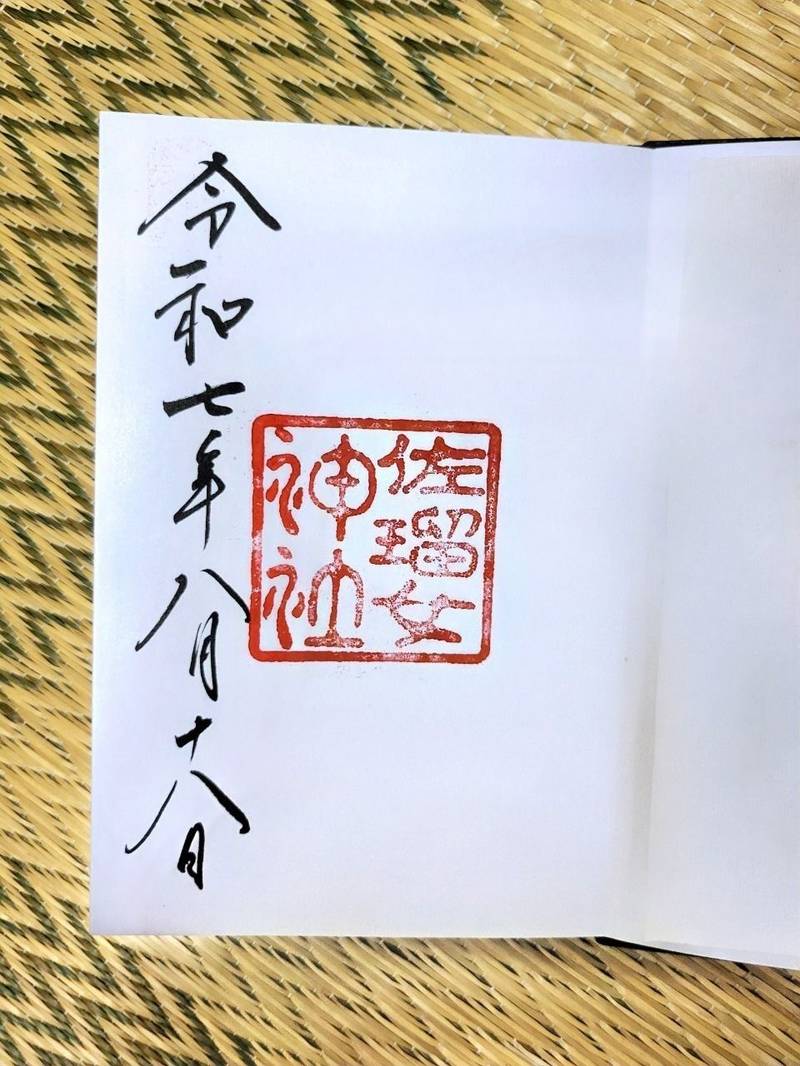 佐瑠女
神社
令和七年八月十八日